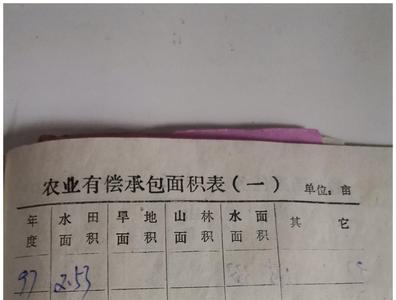 农业有偿承包面积表（一） 单位：亩
年度 水田面积 旱地面积 山林面积 水面面积 其它
97 2.53